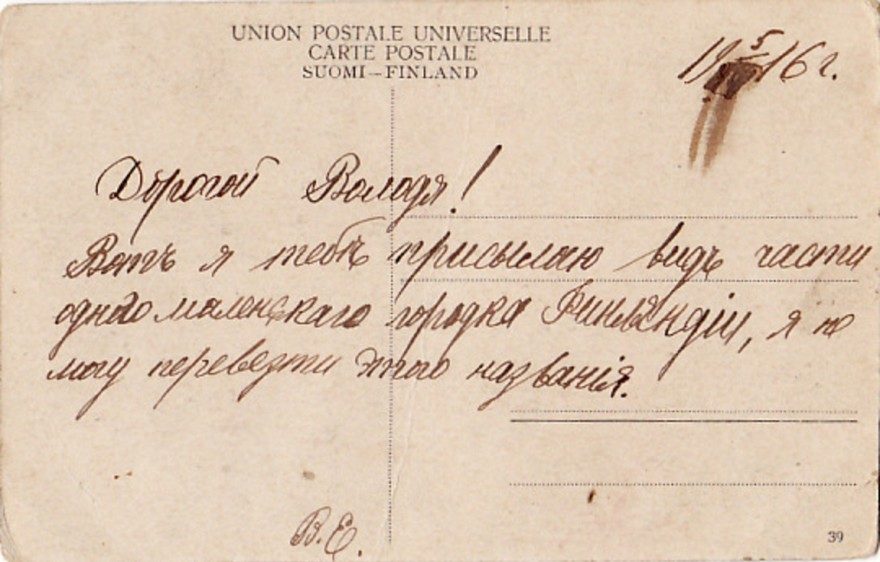 UNION POSTALE UNIVERSELLE
CARTE POSTALE
SUOMI–FINLAND
16 г.
Дорогой Володя!
Вотъ я тебѣ присылаю видъ части
одного маленькаго городка Финляндіи, я не
могу перевезти этого названія.
В.Е.
39